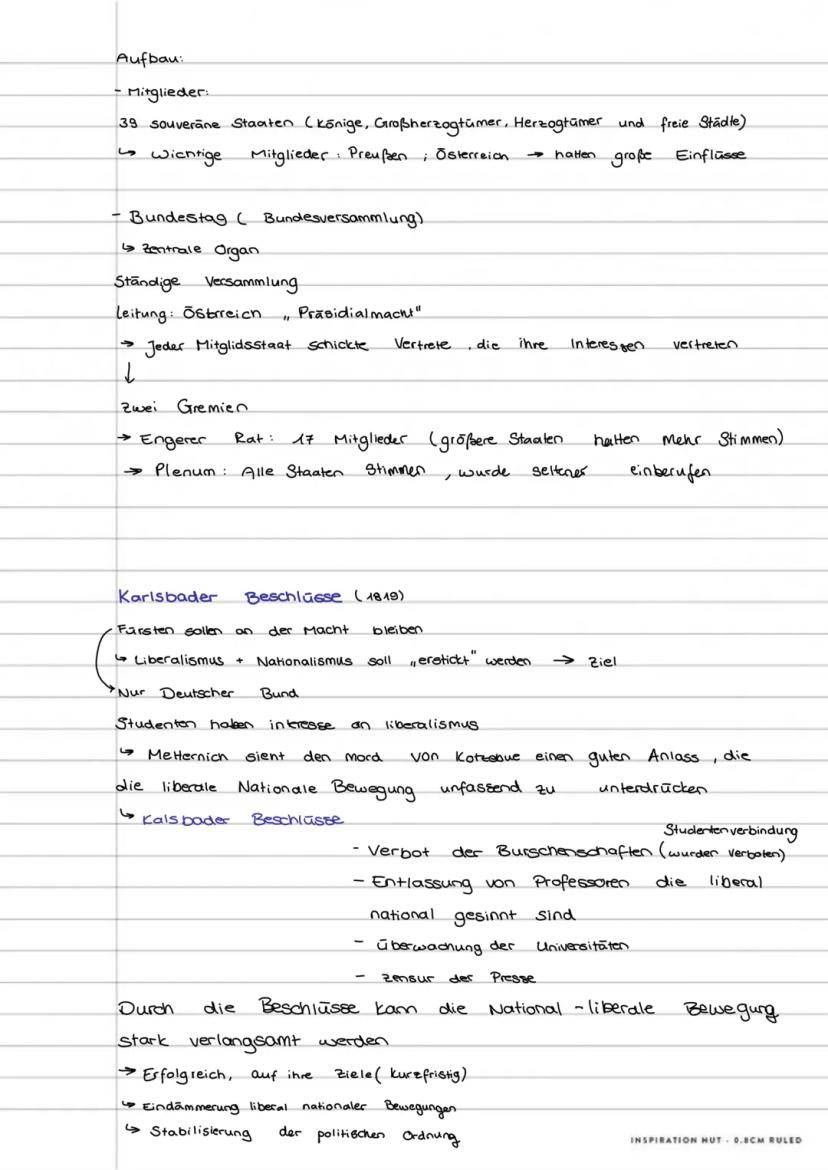 Aufbau:
- Mitglieder:
39 souveräne Staaten (Könige, Großherzogtümer, Herzogtümer und freie Städte)
↳ wichtige Mitglieder : Preußen ; Österreich → hatten große Einflüsse
- Bundestag ( Bundesversammlung)
↳ zentrale Organ
Ständige Versammlung
Leitung: Östrreich „ Präsidialmacht"
→ Jeder Mitglidsstaat schickte Vertrete , die ihre Interessen vertreten
↓
Zwei Gremien
→ Engerer Rat: 17 Mitglieder (größere Staaten hatten mehr Stimmen)
→ Plenum : Alle Staaten Stimmen , wurde seltener einberufen
Karlsbader Beschlüsse (1819)
Fürsten sollen an der Macht bleiben
↳ Liberalismus + Nationalismus soll „erstickt" werden → Ziel
Nur Deutscher Bund
Studenten haben intresse an liberalismus
↳ Metternich sieht den Mord von Kotzebue einen guten Anlass , die
die liberale Nationale Bewegung unfassend zu unterdrücken
↳ Kalsbader Beschlüsse
Studentenverbindung
- Verbot der Burschenschaften (wurden verboten)
- Entlassung von Professoren die liberal
national gesinnt sind
- überwachung der Universitäten
- zensur der Presse
Durch die Beschlüsse kann die National - liberale Bewegung
stark verlangsamt werden
→ Erfolgreich, auf ihre Ziele ( kurzfristig)
↳ Eindämmerung liberal nationaler Bewegungen
↳ Stabilisierung der politischen Ordnung
INSPIRATION HUT - 0.8CM RULED